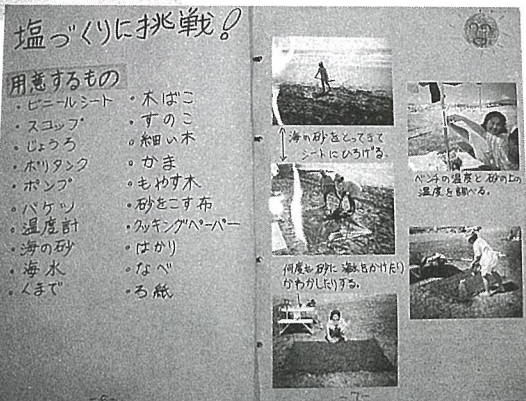 塩づくりに挑戦!
用意するもの
・ビニールシート
・スコップ
・じょうろ
・ポリタンク
・ポンプ
・バケツ
・温度計
・海の砂
・海水
・くまで
・木ばこ
・すのこ
・細い木
・かま
・もやす木
・砂をこす布
・クッキングペーパー
・はかり
・なべ
・ろ紙
-6-
海の砂をとってきて
シートにひろげる。
何度も砂に海水をかけたり
かわかしたりする。
ベンチの温度と砂の上の
温度を調べる。
-7-